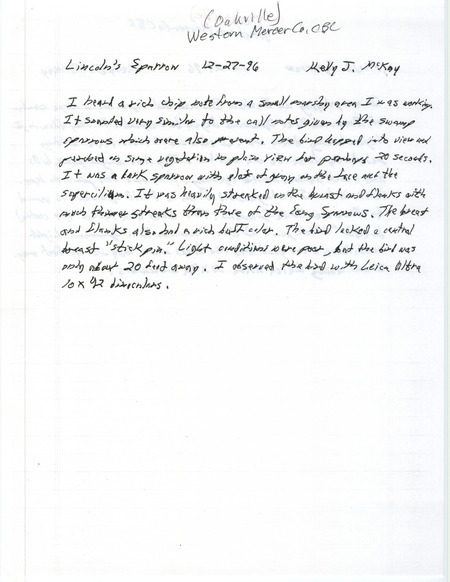 (Oakville)
Western Mercer Co. CBC
Lincoln's Sparrow 12-27-96 Kelly J. McKay
I heard a rich chip note from a small marshy area I was working.
It sounded very similar to the call notes given by the swamp
sparrows which were also present. The bird hopped into view and
perched on some vegetation in plain view for perhaps 20 seconds.
It was a dark sparrow with a lot of gray on the face and the
supercilium. It was heavily streaked on the breast and flanks with
much finer streaks than those of the Song Sparrows. The breast
and flanks also had a rich buff color. The bird lacked a central
breast "stick pin." Light conditions were poor, but the bird was
only about 20 feet away. I observed the bird with Leica Ultra
10 x 42 binoculars.